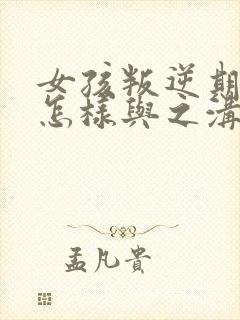 女孩叛逆期
怎樣與之溝
孟凡貴